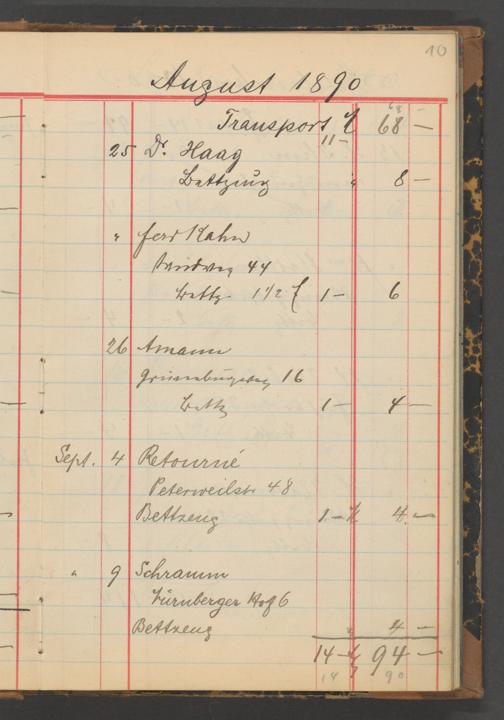 10
August 1890
68 —
Transport ℳ 68 —
11 —
25 Dr. Haag
Bettzeug " 8 —
" Ferd Kahn
44
Bettz. 1 1/2 1 — 6
26 Amann
Grüneburgweg 16
Bettz 1 — 4 —
Sept. 4 Retourné
Peterweilstr 48
Bettzeug 1 — ℳ 4 —
" 9 Schramm
Nürnberger Hof 6
Bettzeug " 4 —
14 — ℳ 94 —
14 90